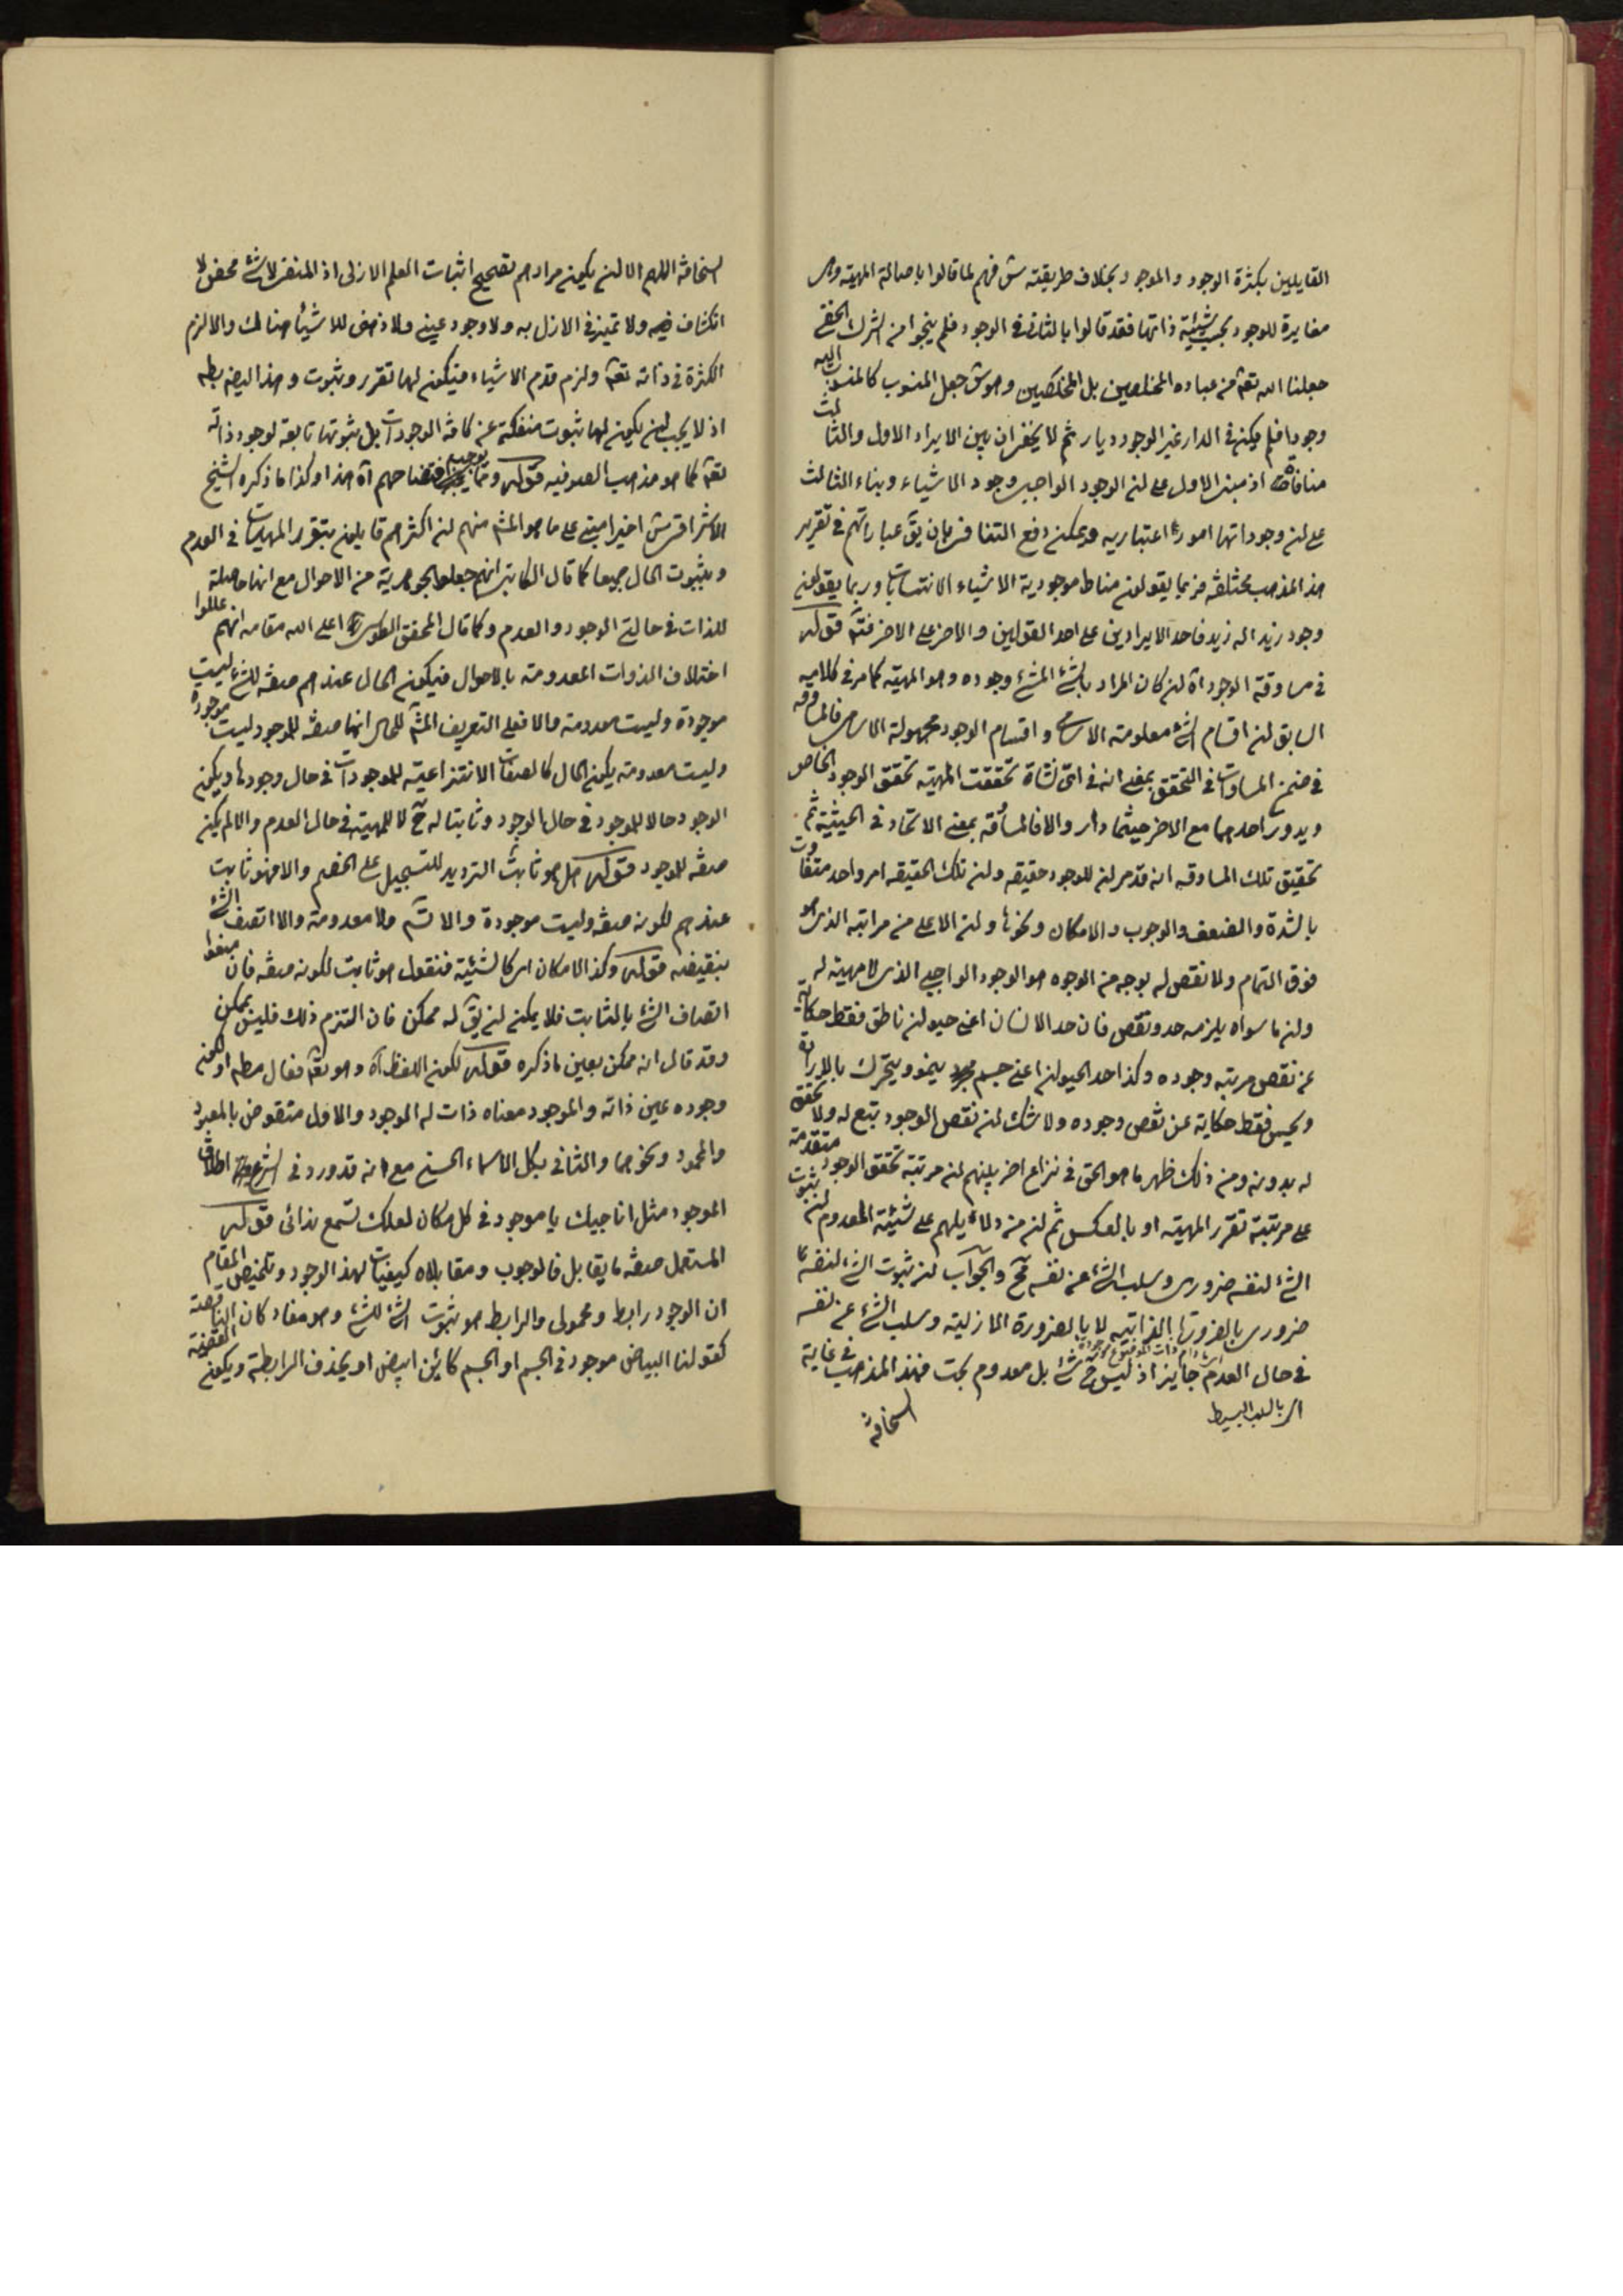 القايلين بكثرة الوجود والموجود بخلاف طريقته س فهم لما قالوا باصالة المهية وهى
مغايرة للوجود بحسب شيئية ذاتها فقد قالوا بالثانى فى الوجود فلم ينجوا من الشرك الخفى
جعلنا الله تعه من عباده المخلصين بل المخلصين وهو ش جعل المنسوب كالمنسوب اليه
وجودا فلم يكن فى الدار غير الوجود ديار ثم لا يخفى ان بين الايراد الاول والثالث
منافاة اذ مبنى الاول على ان الوجود الواجبى وجود الاشياء وبناء الثالث
على ان وجوداتها امور اعتباريه ويمكن دفع التنافى بان يق عباراتهم فى تقرير
هذا المذهب مختلفة فربما يقولون مناط موجودية الاشياء الانتسابات وربما يقولون
وجود زيد اله زيد فاحد الايرادين على احد القولين والاخر على الاخر فتم قوله
فى مساوقة الوجود اه ان كان المراد بالشئ المشئ وجوده وهو المهية كما مر فى كلاميه
السابق ان اقسام الشئ معلومة الاسامى واقسام الوجود مجهولة الاسامى فالمساوقه
فى ضمن المساوات فى التحقق بمعنى انه فى اى نشاة تحققت المهية تحقق الوجود الخاص
ويدور احدهما مع الاخر حيثما دار والا فالمساوقة بمعنى الاتحاد فى الحيثية ثم
تحقيق تلك المساوقه انه قد مر ان للوجود حقيقه وان تلك الحقيقه امر واحد متفاوت
بالشدة والضعف والوجوب والامكان ونحوها وان الاعلى من مراتبه الذى هو
فوق التمام ولا نقص له بوجه من الوجوه هو الوجود الواجبى الذى لا مهية له
وان ما سواه يلزمه حد ونقص فان حد الانسان اعنى حيوان ناطق فقط حكاية
عن نقص مرتبه وجوده وكذا حد الحيوان اعنى جسم ينمو ويتحرك بالارادة
ويحس فقط حكاية عن نقص وجوده ولا شك ان نقص الوجود تبع له ولا تحقق
له بدونه ومن ذلك ظهر ما هو الحق فى نزاع اخر بينهم ان مرتبة تحقق الوجود متقدمة
على مرتبة تقرر المهية او بالعكس ثم ان من دلائلهم على شيئية المعدوم ان ثبوت
الشئ لنفسه ضرورى وسلب الشئ عن نفسه مح والجواب ان ثبوت الشئ لنفسه
ضرورى بالضرورة الذاتيه اى ما دام ذات الموضوع موجودة لا بالضرورة الازلية وسلب الشئ عن نفسه
فى حال العدم جايز اذ ليس ح شئ بل معدوم بحت فهذا المذهب فى غاية
اى بالسلب البسيط
السخافة
السخافة اللهم الا ان يكون مرادهم تصحيح اثبات العلم الازلى اذ المنفى لا شئ محض لا
انكشاف فيه ولا تميز فى الازل به ولا وجود عينى ولا ذهنى للاشياء هنالك والا لزم
الكثرة فى ذاته تعه ولزم قدم الاشياء فيكون لها تقرر وثبوت وهذا ايضا بط
اذ لا يجب ان يكون لها ثبوت منفكة عن كافة الوجودات بل ثبوتها تابعة لوجود ذاته
تعه كما هو مذهب الصوفيه قوله ومما يوجب افتضاحهم اه هذا وكذا ما ذكره الشيخ
الاشراقى ش اخيرا مبنى على ما هو المش منهم ان اكثرهم قايلون بتقرر المهيات فى العدم
وبثبوت الحال جميعا كما قال الكاتبى انهم جعلوا الجوهرية من الاحوال مع انها حاصلة
للذات فى حالتى الوجود والعدم وكما قال المحقق الطوسى اعلى الله مقامه انهم عللوا
اختلاف الذوات المعدومة بالاحوال فيكون الحال عندهم صفة للشئ ليست
موجودة وليست معدومة والا فعلى التعريف المش للحال انها صفة للموجود ليست موجودة
وليست معدومة يكون الحال كالصفات الانتزاعية للموجودات فى حال وجودها ويكون
الوجود حالا للموجود فى حال الوجود وثابتا له ح لا للمهية فى حال العدم والا لم يكن
صفة للموجود قوله هل هو ثابت الترديد للتسجيل على الخصم والا فهو ثابت
عندهم لكونه صفة وليست موجودة والا تس ولا معدومة والا اتصف الشئ
بنقيضه قوله وكذا الامكان اى كالشيئية فنقول هو ثابت لكونه صفة فان منعوا
اتصاف الشئ بالثابت فلا يمكن ان يق له ممكن فان التزم ذلك فليس بممكن
وقد قال انه ممكن بعين ما ذكره قوله لكون اللفظ اه وهو تعه فعال مطم او لكون
وجوده عين ذاته والموجود معناه ذات له الوجود والاول منقوض بالمعبود
والمحمود ونحوهما والثانى بكل الاسماء الحسنى مع انه قد ورد فى الشرع اطلاق
الموجود مثل اناجيك يا موجود فى كل مكان لعلك تسمع ندائى قوله
المستعمل صفة ما يقابل فالوجوب ومقابلاه كيفيات لهذا الوجود وتلخيص المقام
ان الوجود رابط ومحمولى والرابط هو ثبوت الشئ للشئ وهو مفاد كان الناقصة
كقولنا البياض موجود فى الجسم او الجسم كائن ابيض او يحذف الرابطة ويكون القضية